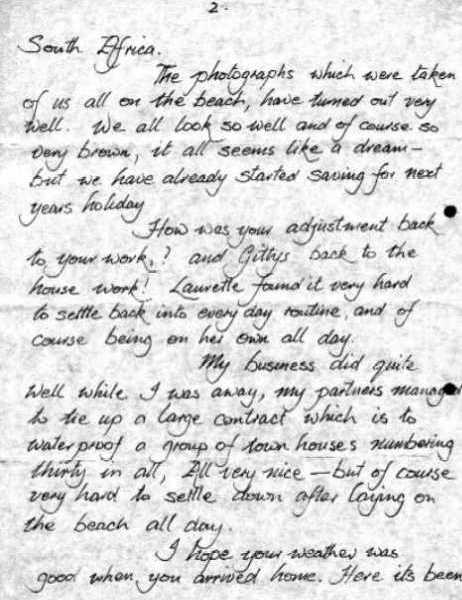 2.
South Africa.
The photographs which were taken
of us all on the beach, have turned out very
well. We all look so well and of course so
very brown, it all seems like a dream -
but we have already started saving for next
years holiday
How was your adjustment back
to your work,? and Gittys back to the
house work! Laurette found it very hard
to settle back into every day routine, and of
course being on her own all day.
My business did quite
well while I was away, my partners manag
to tie up a large contract which is to
waterproof a group of town houses numbering
thirty in all, All very nice - but of course
very hard to settle down after laying on
the beach all day.
I hope your weather was
good when you arrived home. Here its been